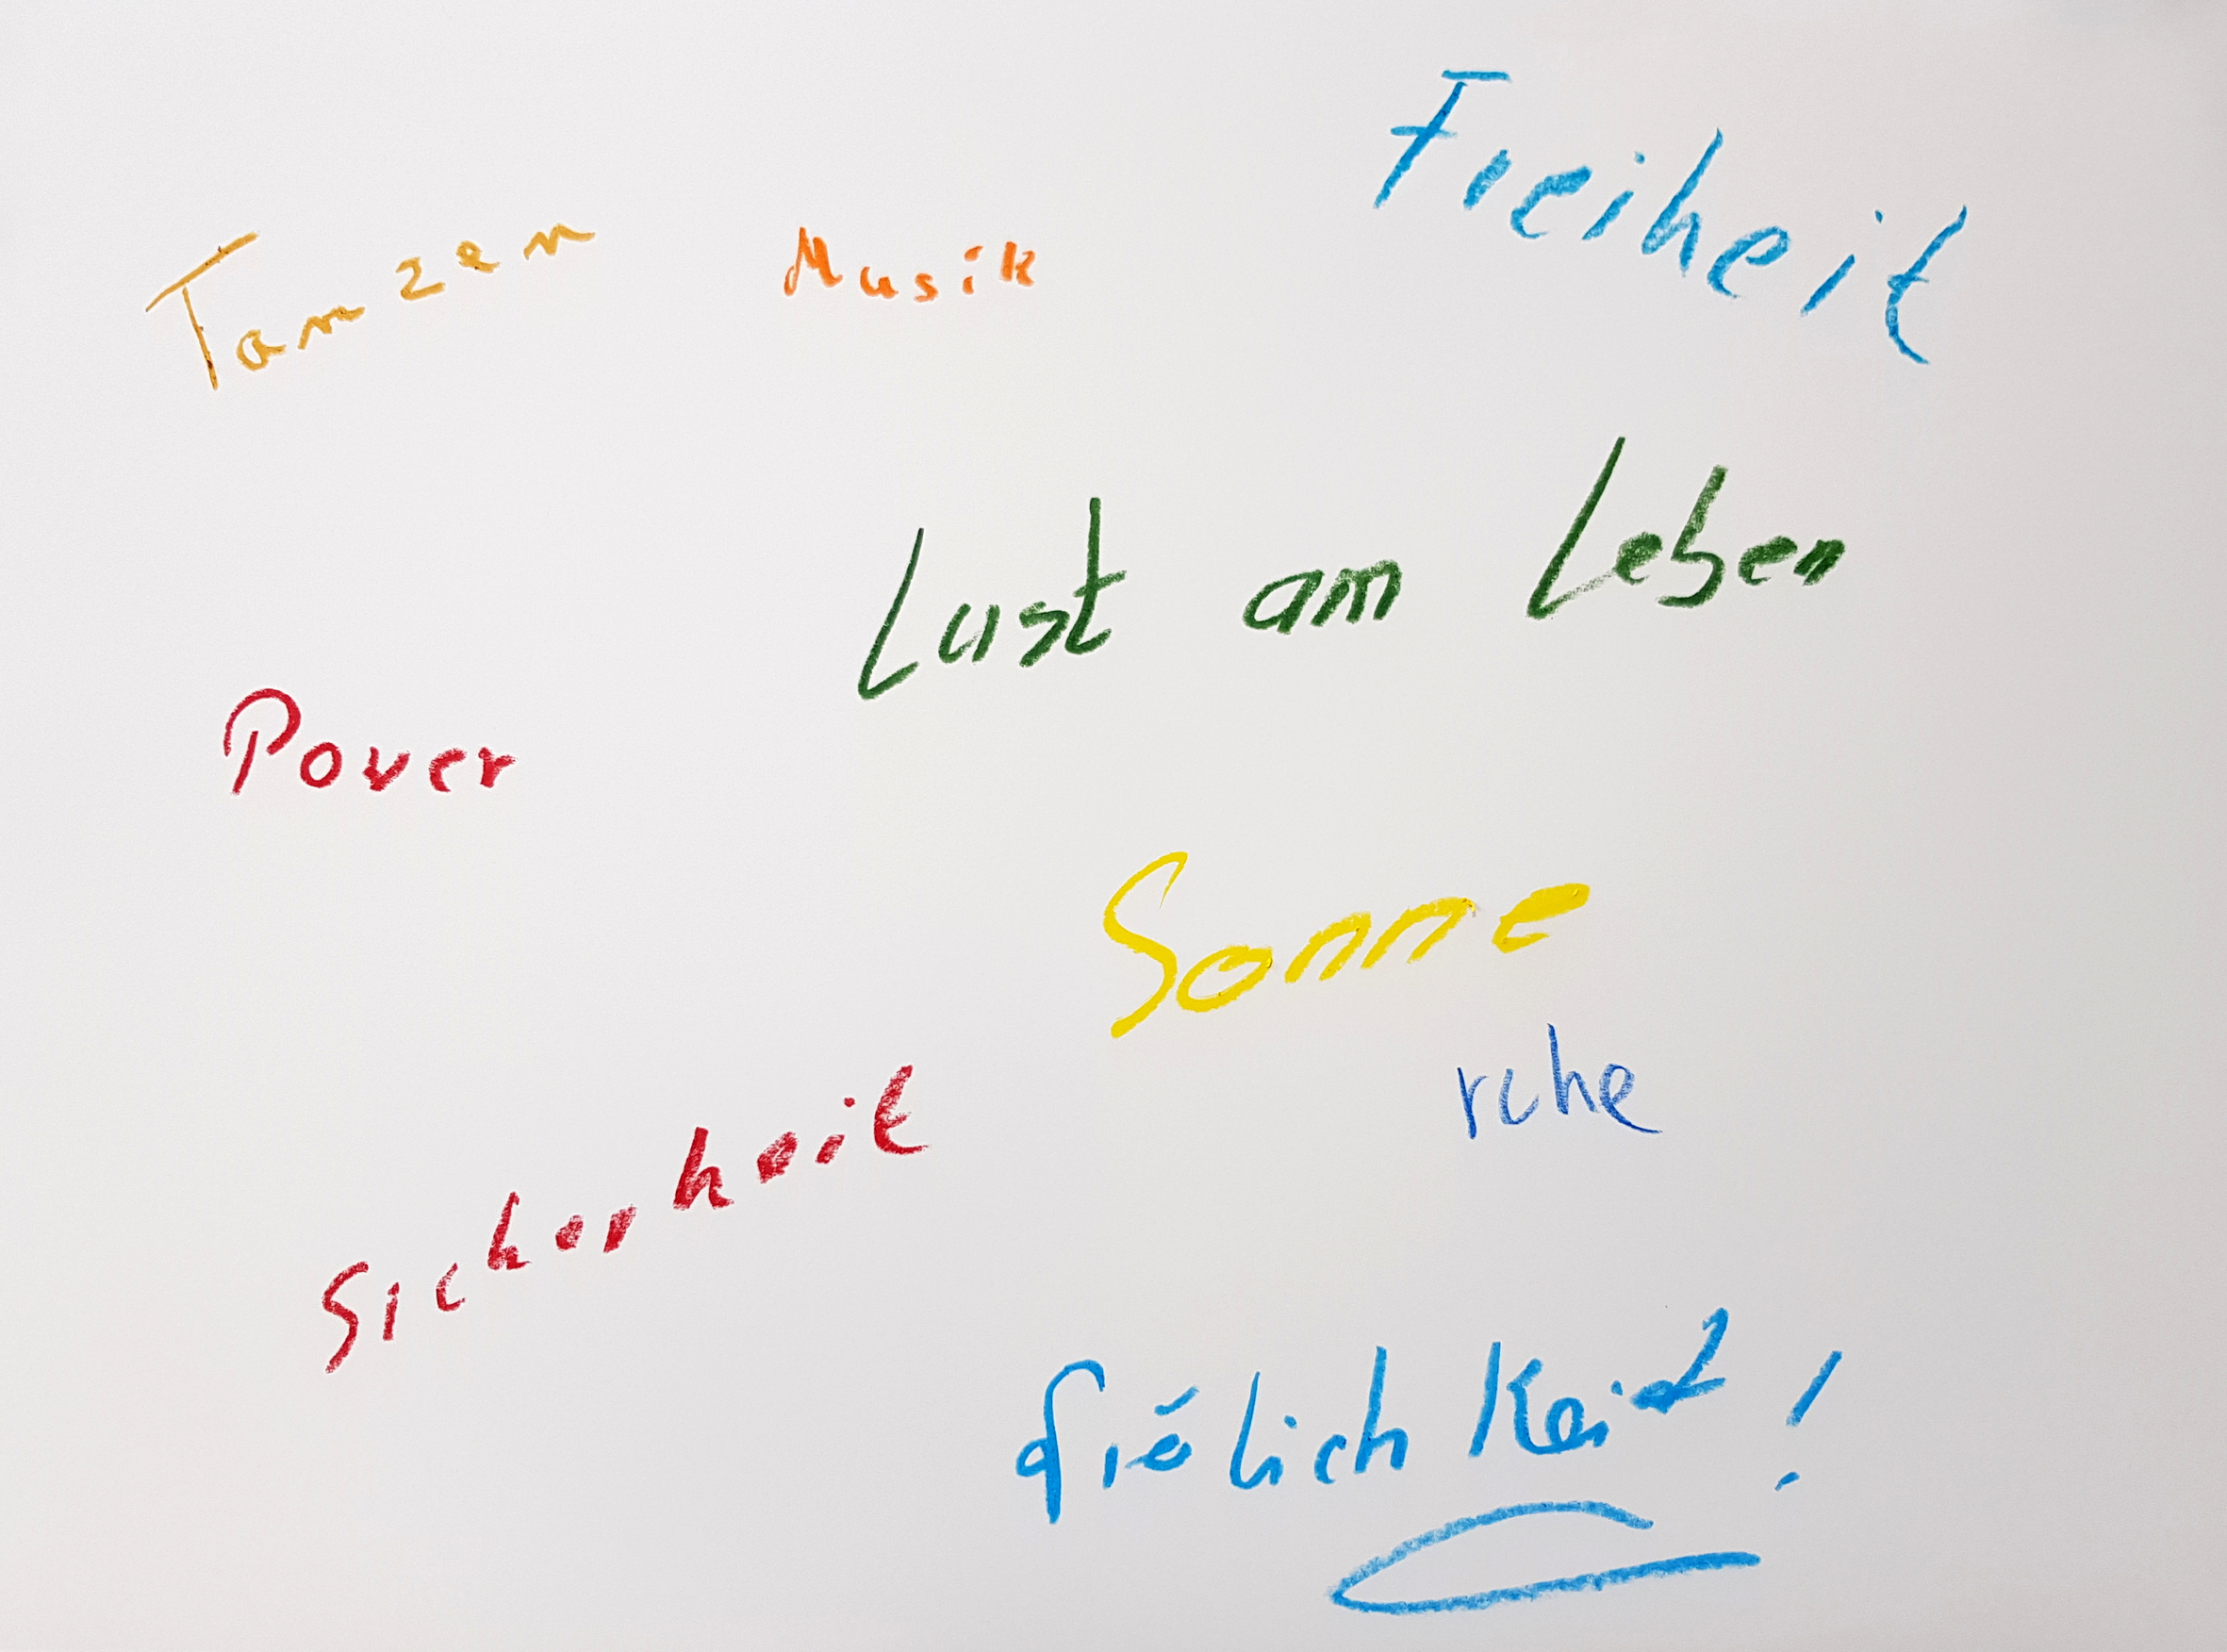 Freiheit
Tanzen Musik
Lust am Leben
Power
Sonne
ruhe
Sicherheit
frölichkeit!